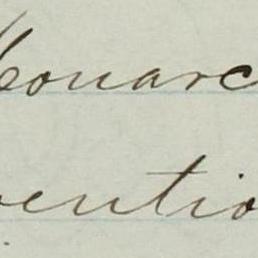 Monarc
ventio